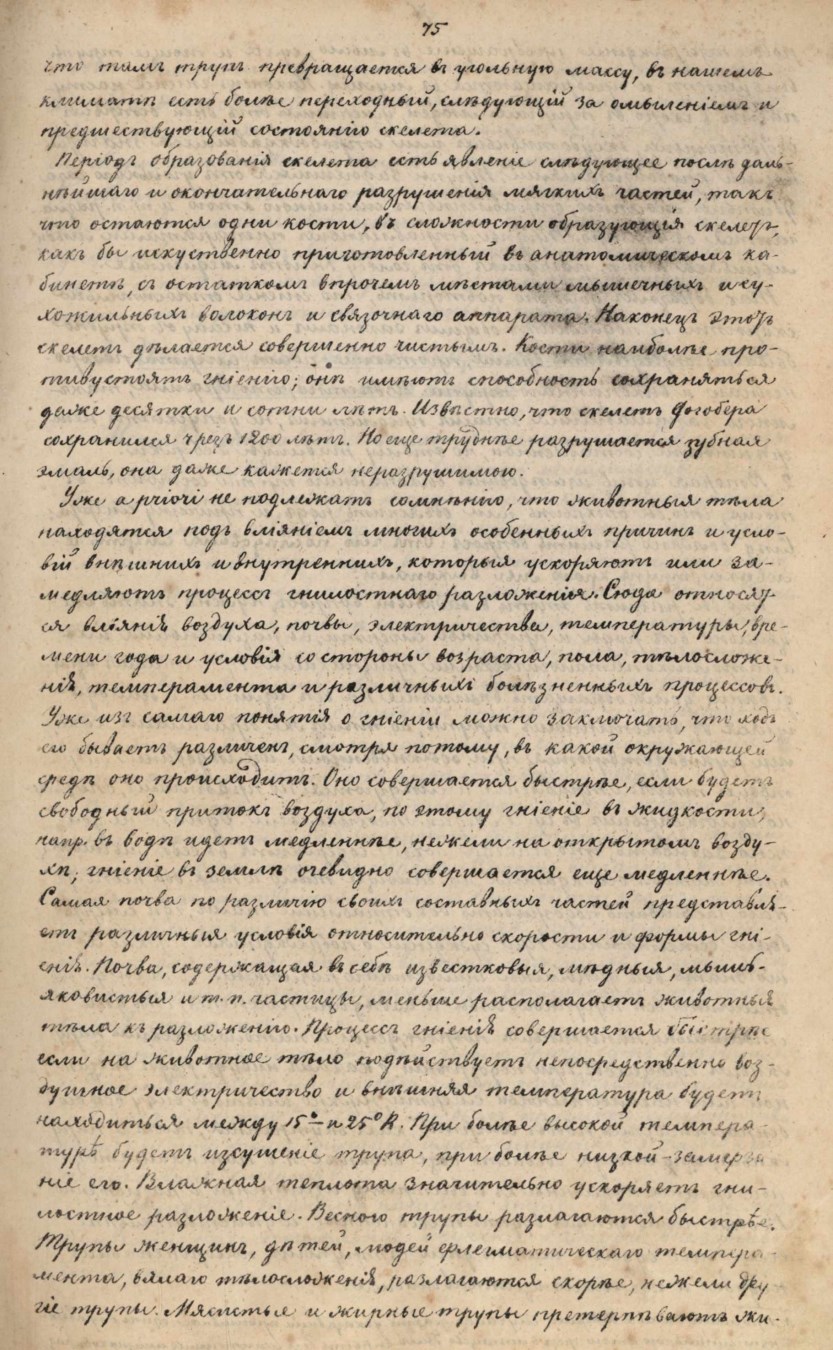 75
что тамъ трупъ превращается въ угольную массу, въ нашемъ
климатѣ есть болѣе переходный, слѣдующій за омыленіемъ и
предшествующій состоянію скелета.
Періодъ образованія скелета есть явленіе слѣдующее послѣ даль-
нѣйшаго и окончательнаго разрушенія мягкихъ частей, такъ
что остаются одни кости, въ сложности образующія скелетъ,
какъ бы искуственно приготовленный въ анатомическомъ ка-
бинетѣ, съ остаткомъ впрочемъ мѣстами мышечныхъ и су-
хожильныхъ волоконъ и связочнаго аппарата. Наконецъ этотъ
скелетъ дѣлается совершенно чистымъ. Кости наиболѣе про-
тивустоятъ гніенію; онѣ имѣютъ способность сохраняться
даже десятки и сотни лѣтъ. Извѣстно, что скелетъ Дагобера
сохранился чрезъ 1200 лѣтъ. Но еще труднѣе разрушается зубная
эмаль, она даже кажется неразрушимою.
Уже a priori не подлежатъ сомнѣнію, что животныя тѣла
находятся подъ вліяніемъ многихъ особенныхъ причинъ и усло-
вій внѣшнихъ и внутреннихъ, которыя ускоряютъ или за-
медляютъ процессъ гнилостнаго разложенія. Сюда относят-
ся вліянія воздуха, почвы, электричества, температуры, вре-
мени года и условія со стороны возраста, пола, тѣлосложе-
нія, темперамента и различныхъ болѣзненныхъ процессовъ.
Уже изъ самаго понятія о гніеніи можно заключать, что ходъ
его бываетъ различенъ, смотря потому, въ какой окружающей
средѣ оно происходитъ. Оно совершается быстрѣе, если будетъ
свободный притокъ воздуха, по этому гніеніе въ жидкости,
напр. въ водѣ идетъ медленнѣе, нежели на открытомъ возду-
хѣ; гніеніе въ землѣ очевидно совершается еще медленнѣе.
Самая почва по различію своихъ составныхъ частей представля-
етъ различныя условія относительно скорости и формы гні-
енія. Почва, содержащая въ себѣ известковыя, мѣдныя, мышь-
яковистыя и т. п. частицы, меньше располагаетъ животныя
тѣла къ разложенію. Процессъ гніенія совершается быстрѣе
если на животное тѣло подѣйствуетъ непосредственно воз-
душное электричество и внѣшняя температура будетъ
находиться между 15° и 25° R. При болѣе высокой темпера-
турѣ будетъ изсушеніе трупа, при болѣе низкой - замерза-
ніе его. Влажная теплота значительно ускоряетъ гни-
лостное разложеніе. Весною трупы разлагаются быстрѣе.
Трупы женщинъ, дѣтей, людей флегматическаго темпера-
мента, вялаго тѣлосложенія, разлагаются скорѣе, нежели дру-
гіе трупы. Мясистые и жирные трупы претерпѣваютъ жи-